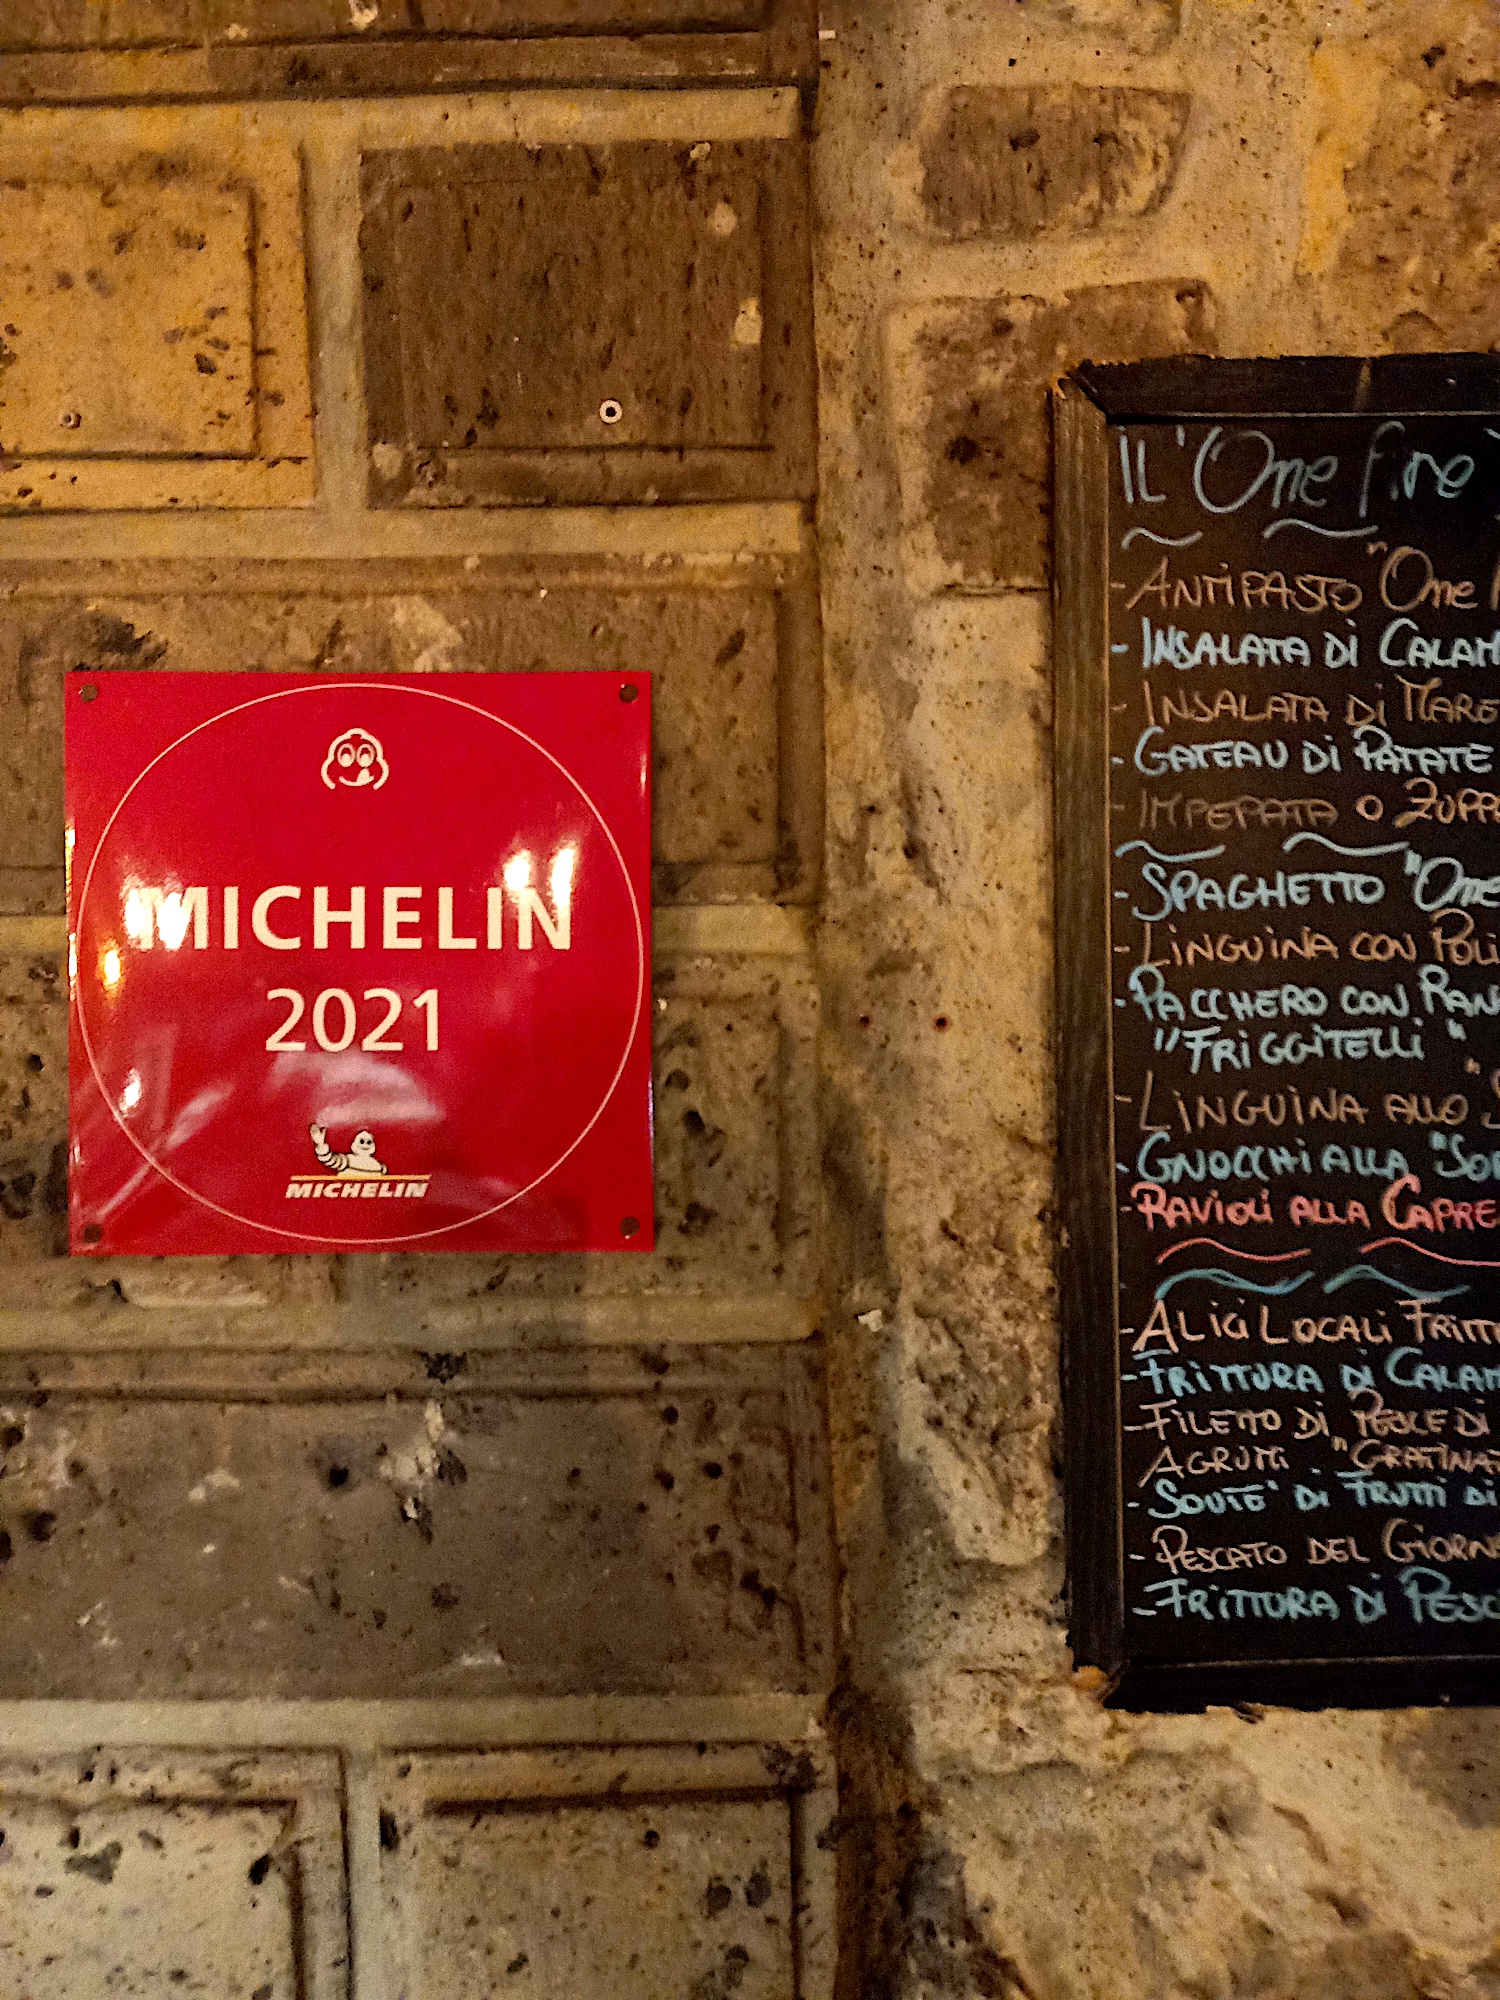 MICHELIN
2021
MICHELIN
IL 'One fire
- ANTIPASTO "One
- INSALATA Di CALAM
- INSALATA Di MARE
- GATEAU Di PATATE
- IMPEPATA O ZUPP
- SPAGHETTO "One
- LINGUINA CON POL
- PACCHERO CON RAN
"FRIGGITELLI"
- LINGUINA ALLO "S
- GNOCCHI ALLA "SOR
- RAVIOLI ALLA CAPRE
- ALICI LOCALI FRITT
- FRITTURA Di CALAM
- FILETTO Di PESCE Di
AGRUMI "GRATINAT
- SOUTE' Di FRUTTI Di
- PESCATO DEL GIORN
- FRITTURA Di PESC